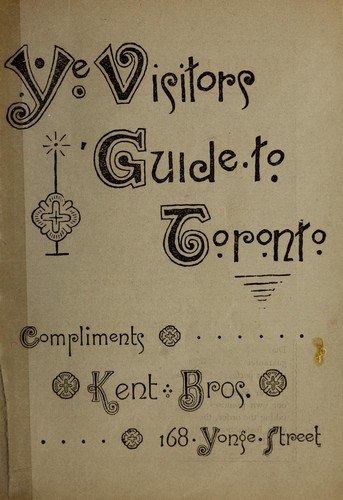 Ye Visitors
Guide to
Toronto
Compliments
Kent Bros.
168 Yonge Street